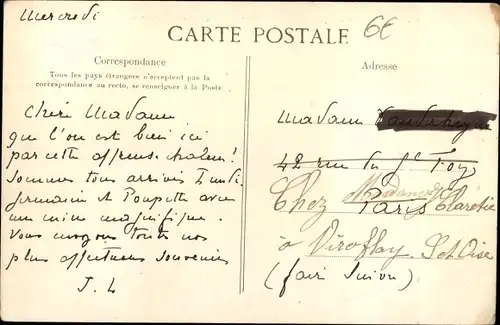 Mercredi
CARTE POSTALE
6€
Correspondance
Tous les pays étrangers n'acceptent pas la
correspondance au recto, se renseigner à la Poste
Chère Madame
que l'on est bien ici
par cette affreuse chaleur!
Sommes tous arrivés Lundi
Germaine et Poupette avec
une mine magnifique.
Vous envoyons toutes nos
plus affectueux souvenirs
J. L
Adresse
Madame
42 rue du Gl Foy
Chez Paris Claretie
à Viroflay, S et Oise
(faire suivre)